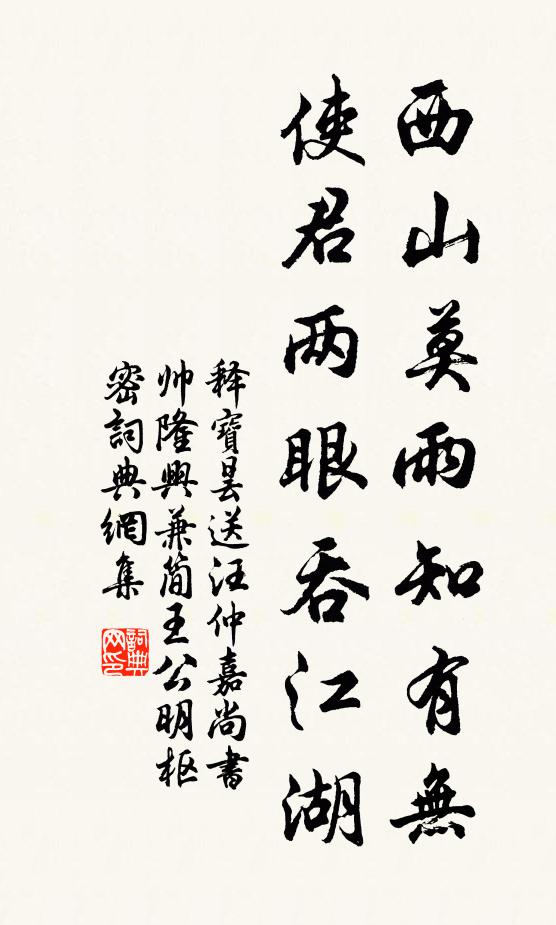 西山莫雨知有無
使君两眼吞江湖
释寶昙送汪仲嘉尚書
帅隆興兼简王公明枢
密詞典網集
詞典
网印